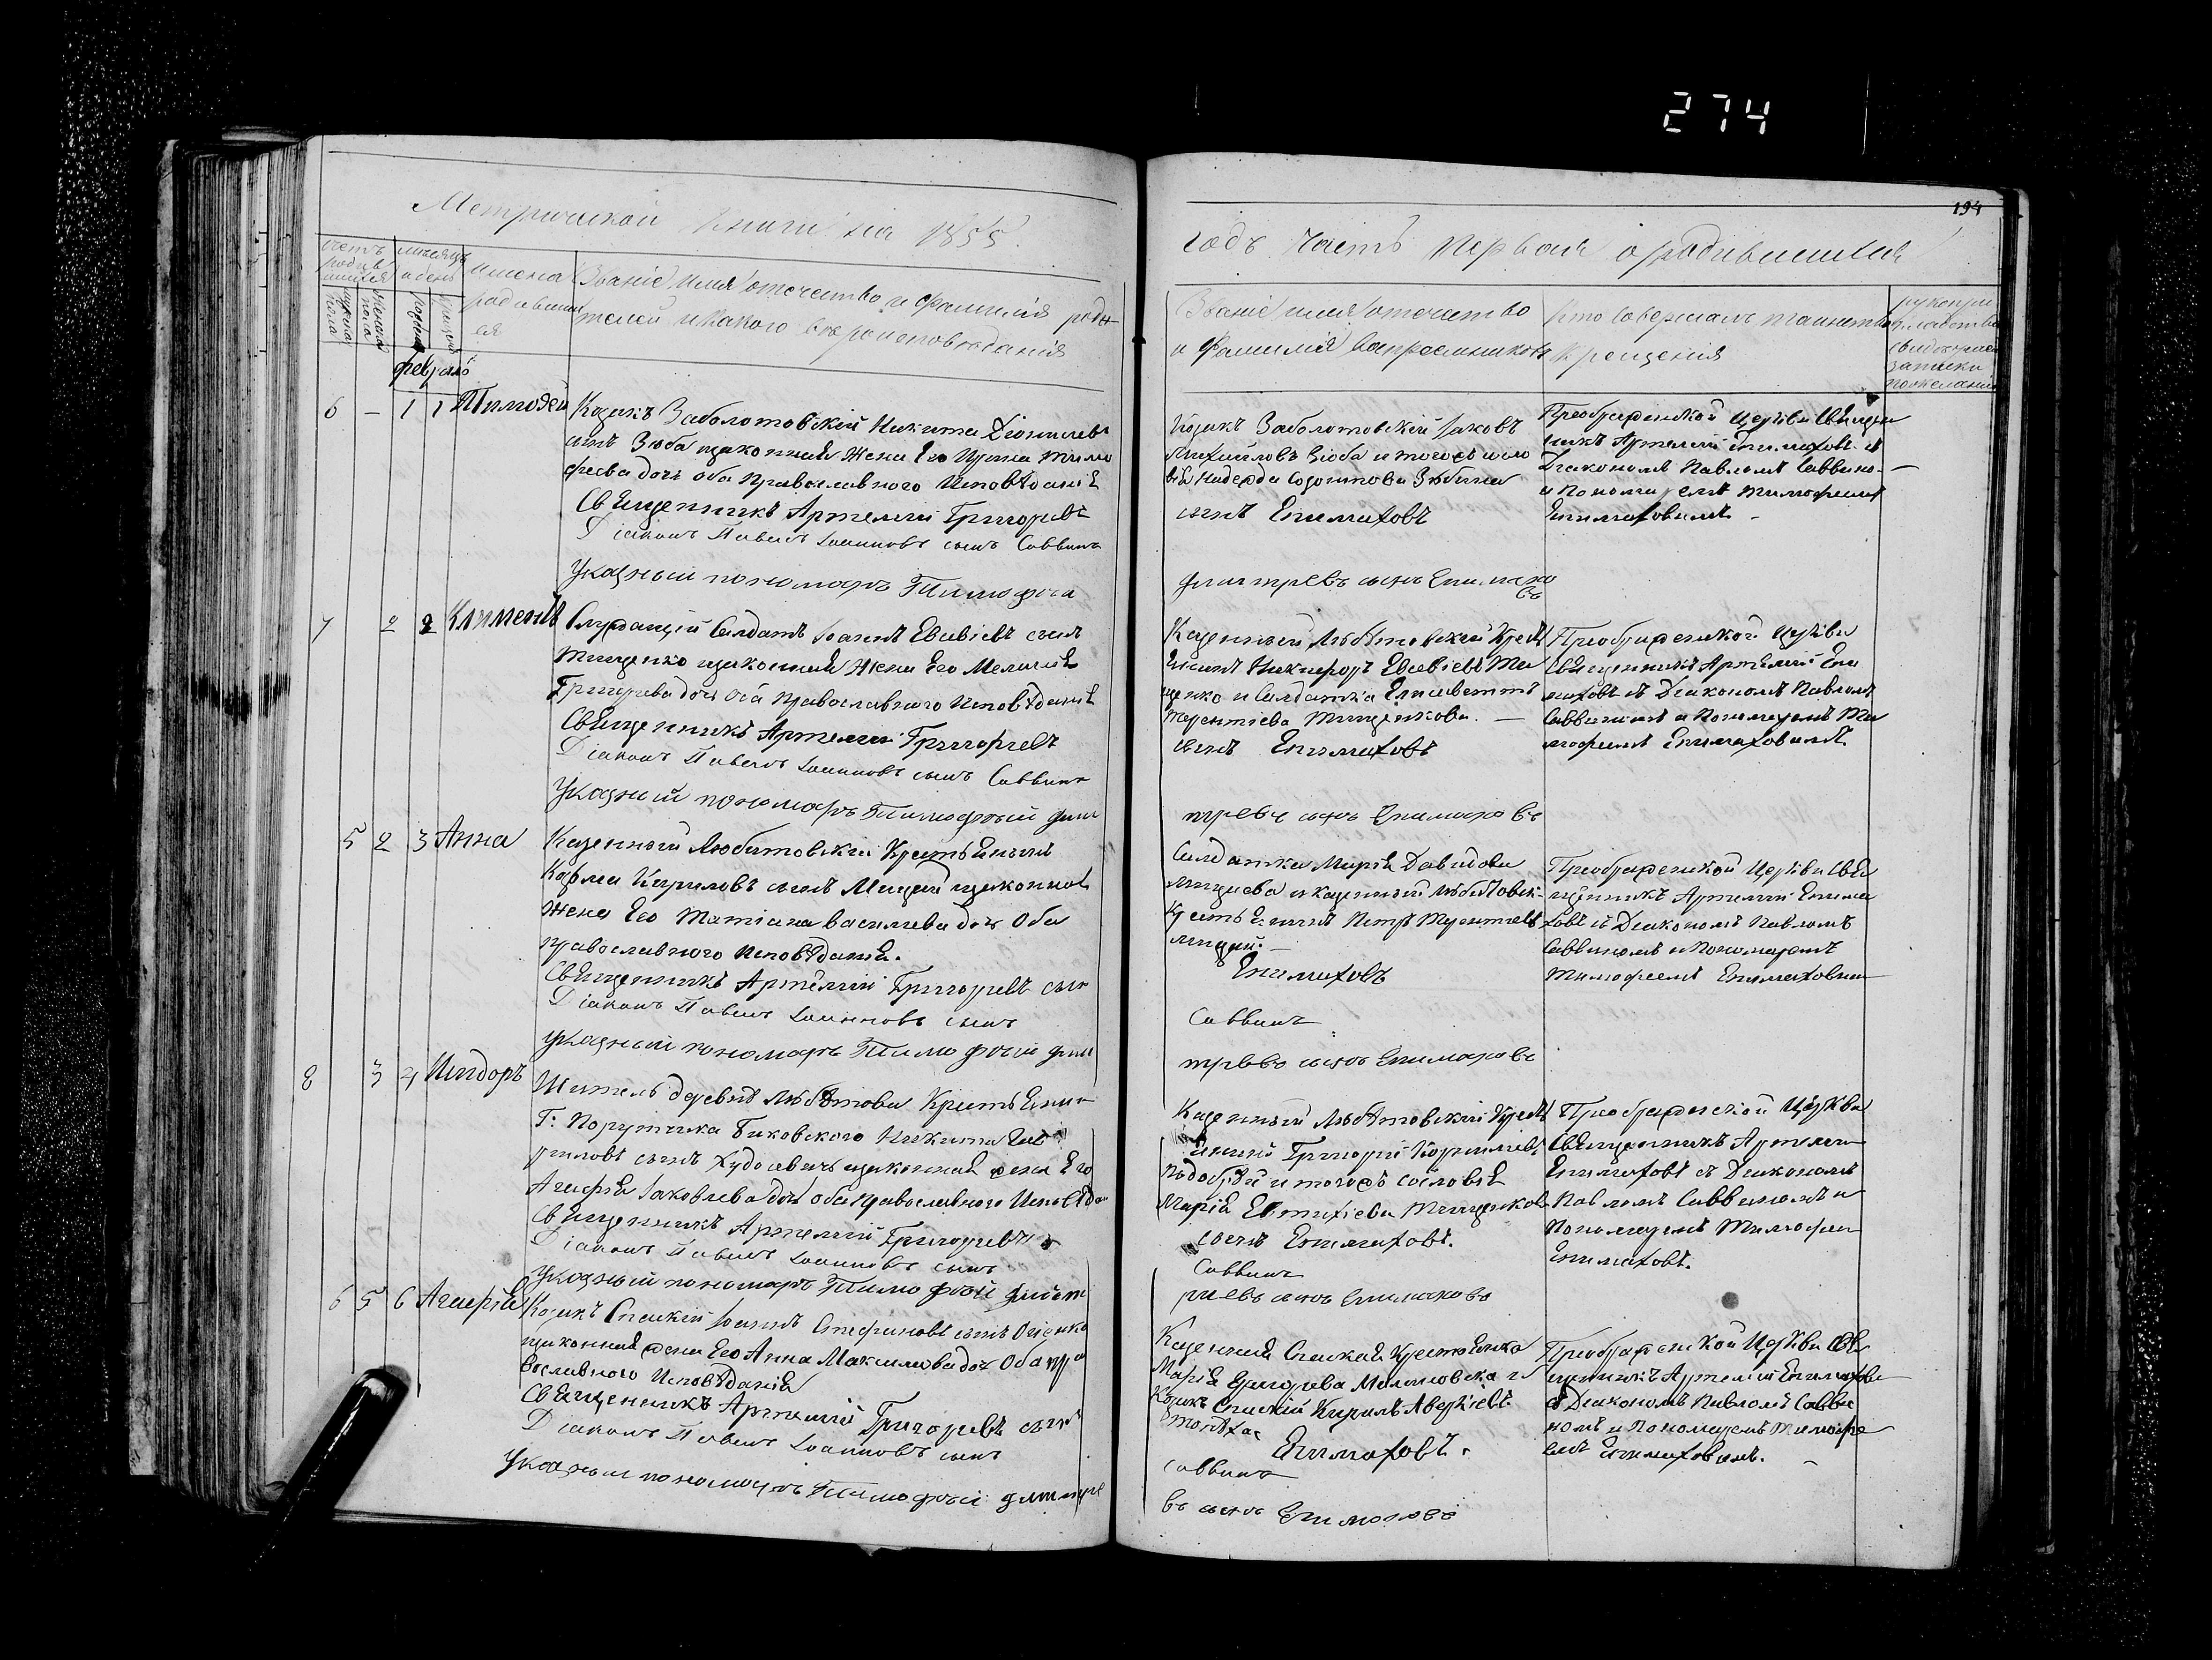 274
194
Метрической книги на 1855
годъ часть первая о родившихся
счетъ родившихся
мужеска пола
женска пола
месяцъ и день
рождения
крещения
имена родившихся
Званіе имя отечество и фамилія роди
телей и какого вероисповеданія
Званіе имя отечество
и фамилія воспреемниковъ
Кто совершалъ таинство
крещенія
рукопри
кладство
свидетелей
записки
по желанию
февраль
6 — 1 1 Тимофей
Козакъ Заболотовскій Никита Діонисіевъ
сынъ Зюба законная Жена Его Ирина Тимо
феева дочь оба православного Исповѣданія
Священникъ Артемій Григорьевъ
Діаконъ Павелъ Іоанновъ сынъ Саввинъ
Указный пономарь Тимофей
Козакъ Заболотовскій Іаковъ
Михайловъ Зюба и того жъ
Надежда Зюбина
сынъ Епимаховъ
димтревъ сынъ Епимахо
въ
Преображенской Церкви Священ
никъ Артемій Епимаховъ съ
Диакономъ Павломъ Саввино
и Пономаремъ Тимофеемъ
Епимаховимъ. —
7 2 2 Климентъ
Служащій Салдатъ Іоаннъ Евсевіевъ сынъ
Тищенко законная Жена Его Меланія
Григориева дочь Оба православного Исповѣданія
Священникъ Артемій Григорьевъ
Діаконъ Павелъ Іоанновъ сынъ Саввинъ
Указный пономарь Тимофей дим
Казенный Любѣтовскій Крестя
Енинъ Никифоръ Евсевіевъ Ти
щенко и Салдатка Елисаветта
Терентіева Тищенкова. —
сынъ Епимаховъ
тревъ сынъ Епимаховъ
Преображенской Церкви
Священникъ Артемій Епи
маховъ съ Диакономъ Павломъ
Саввинимъ и Пономаремъ Ти
мофеемъ Епимаховимъ.
5 2 3 Анна
Казенный Любитовскій Крестьянинъ
Козма Кириловъ сынъ Мицай законная
Жена Его Татіана Василиева дочь Оба
православного Исповѣданія.
Священникъ Артемій Григорьевъ сын
Діаконъ Павелъ Іоанновъ сынъ
Указный пономарь Тимофей дим
Салдатка Марія Давидова
Мицаева и казенный Любитовск.
Крестьянинъ Петръ Терентіевъ
Мицай. —
Епимаховъ
Саввинъ
тревъ сынъ Епимаховъ
Преображенской Церкви Свя
щенникъ Артемій Епима
ховъ съ Диакономъ Павломъ
Саввиномъ и Пономаремъ
Тимофеемъ Епимаховим
8 3 4 Исидоръ
Житель деревнѣ Любѣтова Крестьянин
Г: Поручика Биковского Никита Гав
риловъ сынъ Худосевичъ законная жена Его
Агафія Іаковлева дочь оба православного Исповѣда
Священникъ Артемій Григорьевъ
Діаконъ Павелъ Іоанновъ сынъ
Указный пономарь Тимофей димит
Казенный Любѣтовскій Крестя
Енинъ Григорій Корниліевъ
и того жъ сословія
Марія Евтихіева Тищенков
сынъ Епимаховъ.
Саввинъ
риевъ сынъ Епимаховъ
Преображенской Церкви
Священникъ Артемій
Епимаховъ съ Диакономъ
Павломъ Саввиномъ и
Пономаремъ Тимофеем
Епимаховъ.
6 5 6 Агафія
Козакъ Спаскій Іоаннъ Стефановъ сынъ
законная жена Его Анна Максимова доч Оба пра
вославного Исповѣданія
Священникъ Артемій Григорьевъ сынъ
Діаконъ Павелъ Іоанновъ сынъ
Указный пономарь Тимофей димтре
Казенная Спаская Крестьянка
Марія Григорева и
Козакъ Спаскій Кирилъ Аверкіевъ
Епимаховъ.
Саввинъ
въ сынъ Епимаховъ
Преображенской Церкви Свя
щенникъ Артемій Епимахов
съ Диакономъ Павломъ Савви
номъ и Пономаремъ Тимофе
емъ Епимаховимъ. —